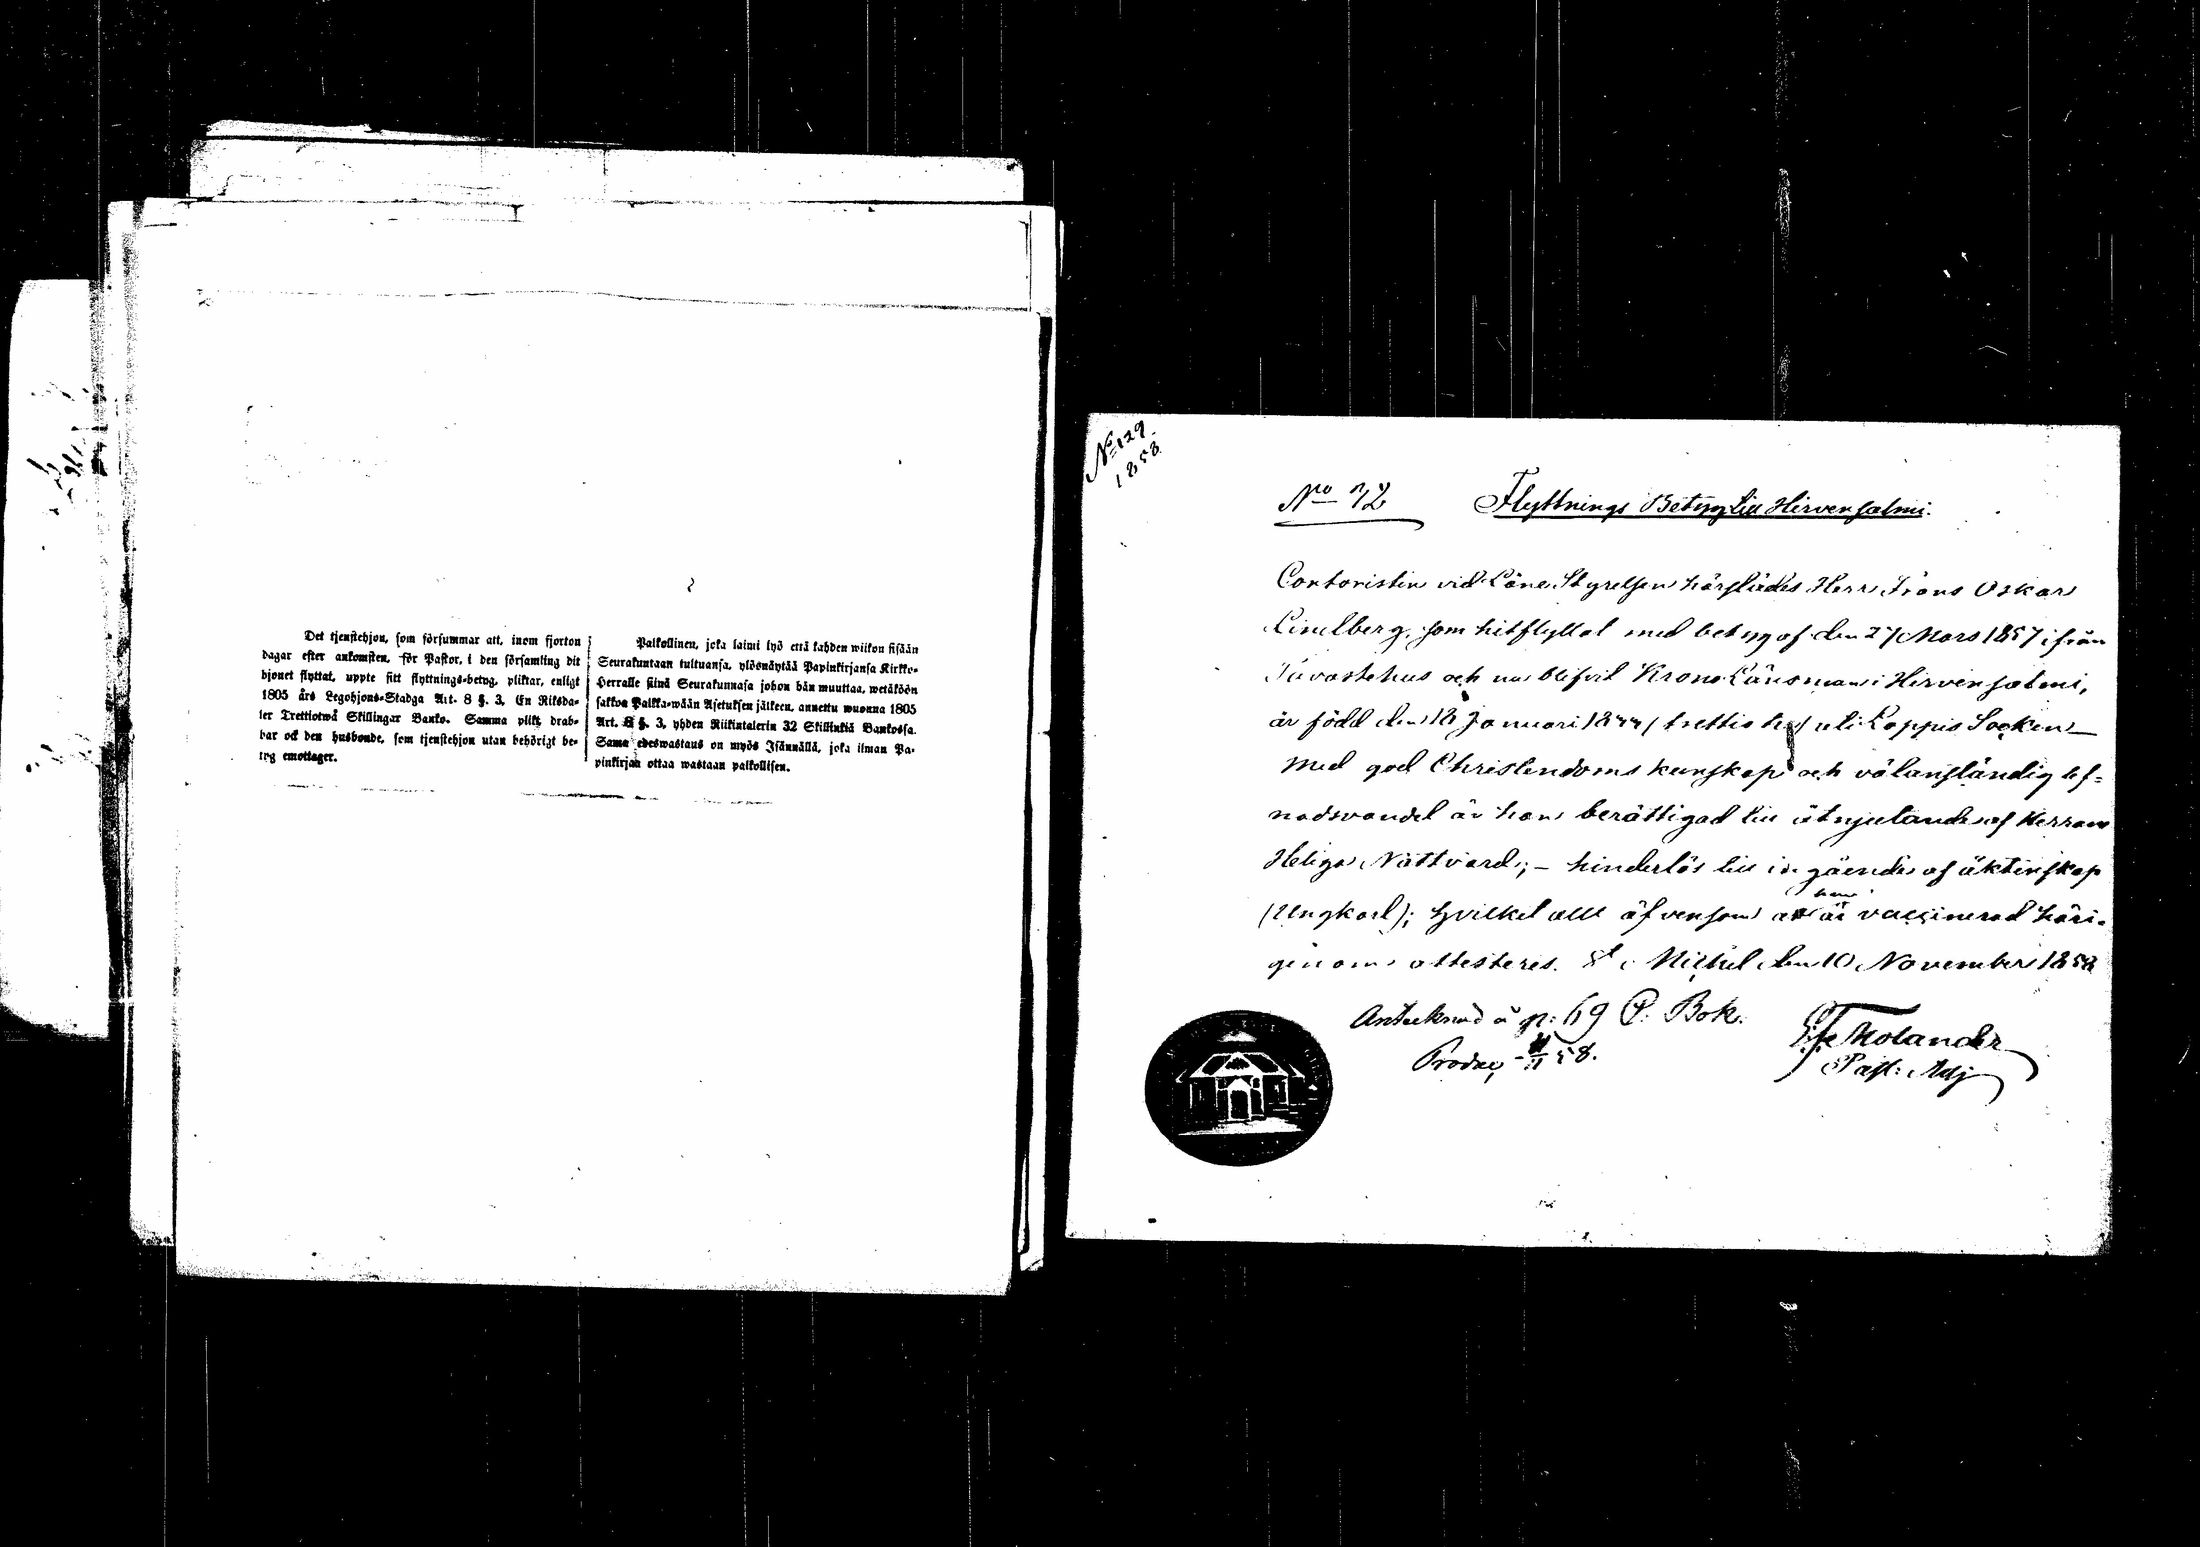 Det tjenstehjon, som försummar att, inom fjorton
dagar efter ankomsten, för Pastor, i den församling dit
hjonet flyttat, uppte sitt flyttnings-betyg, pliktar, enligt
1805 års Legohjons-Stadga Art. 8 §. 3, En Riksda-
ler Trettiotwå Skillingar Banko. Samma plikt drab-
bar ock den husbonde, som tjenstehjon utan behörigt be-
tyg emottager.
Palkollinen, joka laimi lyö että kahden wiikon sisään
Seurakuntaan tultuansa, ylösnäytää Papinkirjansa Kirkko-
Herralle siinä Seurakunnasa johon hän muuttaa, wetäköön
sakkoa Palkka-wään Asetuksen jälkeen, annettu wuonna 1805
Art. 8 §. 3, yhden Riikintalerin 32 Skillinkiä Bankossa.
Sama edeswastaus on myös Isännällä, joka ilman Pa-
pinkirjan ottaa wastaan palkollisen.
No 129
1858
No 72 Flyttnings Betyg till Hirvensalmi.
Contoristen vid Läne Styrelsen härstädes Herr Frans Oskar
Lindberg, som hitflyttat med betyg af den 27 Mars 1857 ifrån
Tavastehus och nu blifvit Krono Länsman i Hirvensalmi,
är född den 18 Januari 18 uti Loppis Socken
med god Christendoms kunskap och välanständig lef-
nadsvandel är han berättigad till åtnjutande af Herrans
Heliga Nattvard; - hinderlös till ingående af äktenskap
(Ungkarl); hvilket allt äfvensom att han är vaccinerad häri-
genom attesteras. St Michel den 10 November 1858
Antecknad å p: 69 P. Bok.
58.
Molander
Past: Adj